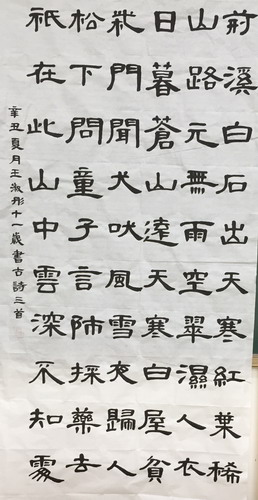 荊溪白石出天寒紅葉稀
山路元無雨空翠濕人衣
日暮蒼山遠天寒白屋貧
柴門聞犬吠風雪夜歸人
松下問童子言師採藥去
祇在此山中雲深不知處
辛丑夏月王淑彤十一歲書古詩三首